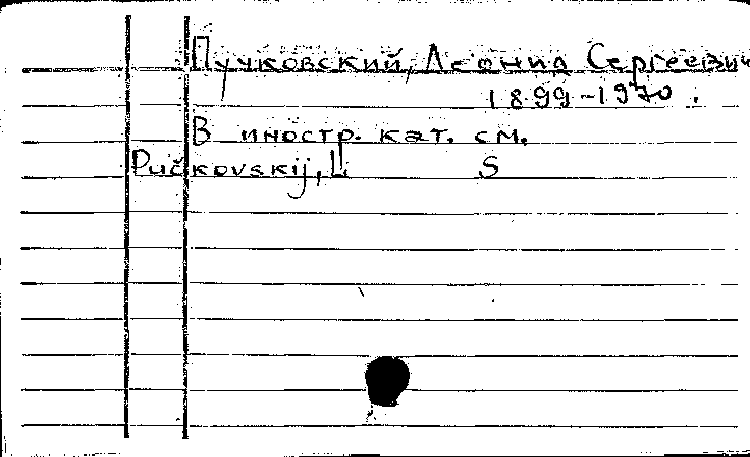 Пучковский, Леонид Сергеевич
1899-1970.
В иностр. кат. см.
Pučkovskij, L. S